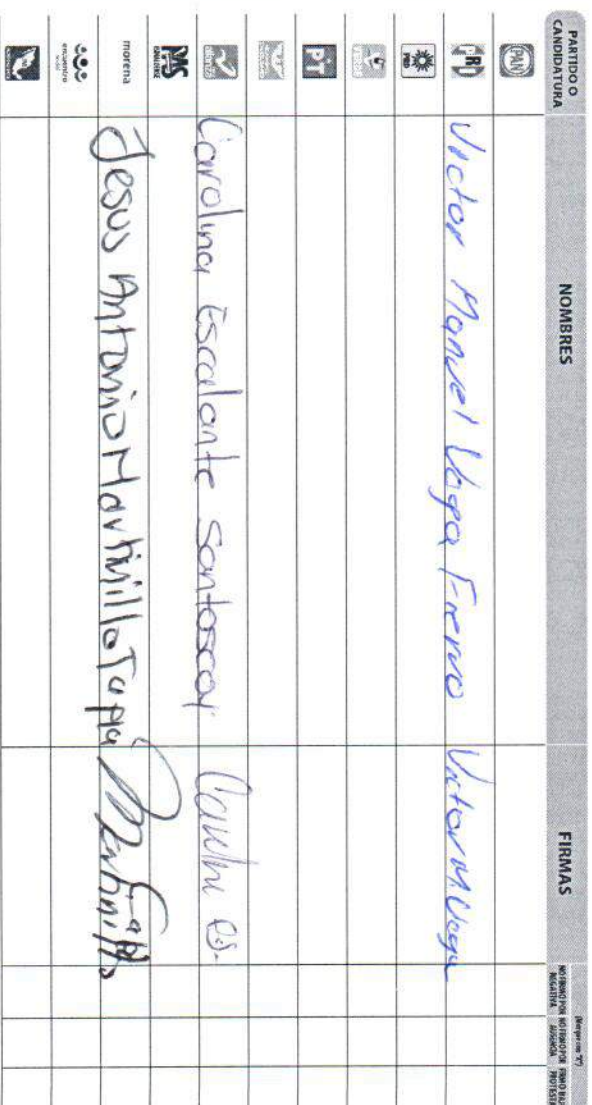 PARTIDO O CANDIDATURA
NOMBRES
FIRMAS
(Marque con "X")
NO FIRMÓ POR NEGATIVA
NO FIRMÓ POR AUSENCIA
FIRMÓ BAJO PROTESTA
PAN
PRI Victor Manuel Vega Fierro Victor M Vega
PRD
VERDE
PT
alianza Carolina Escalante Santoscoy
PAS
morena Jesus Antonio Martinillo Tapia
encuentro social